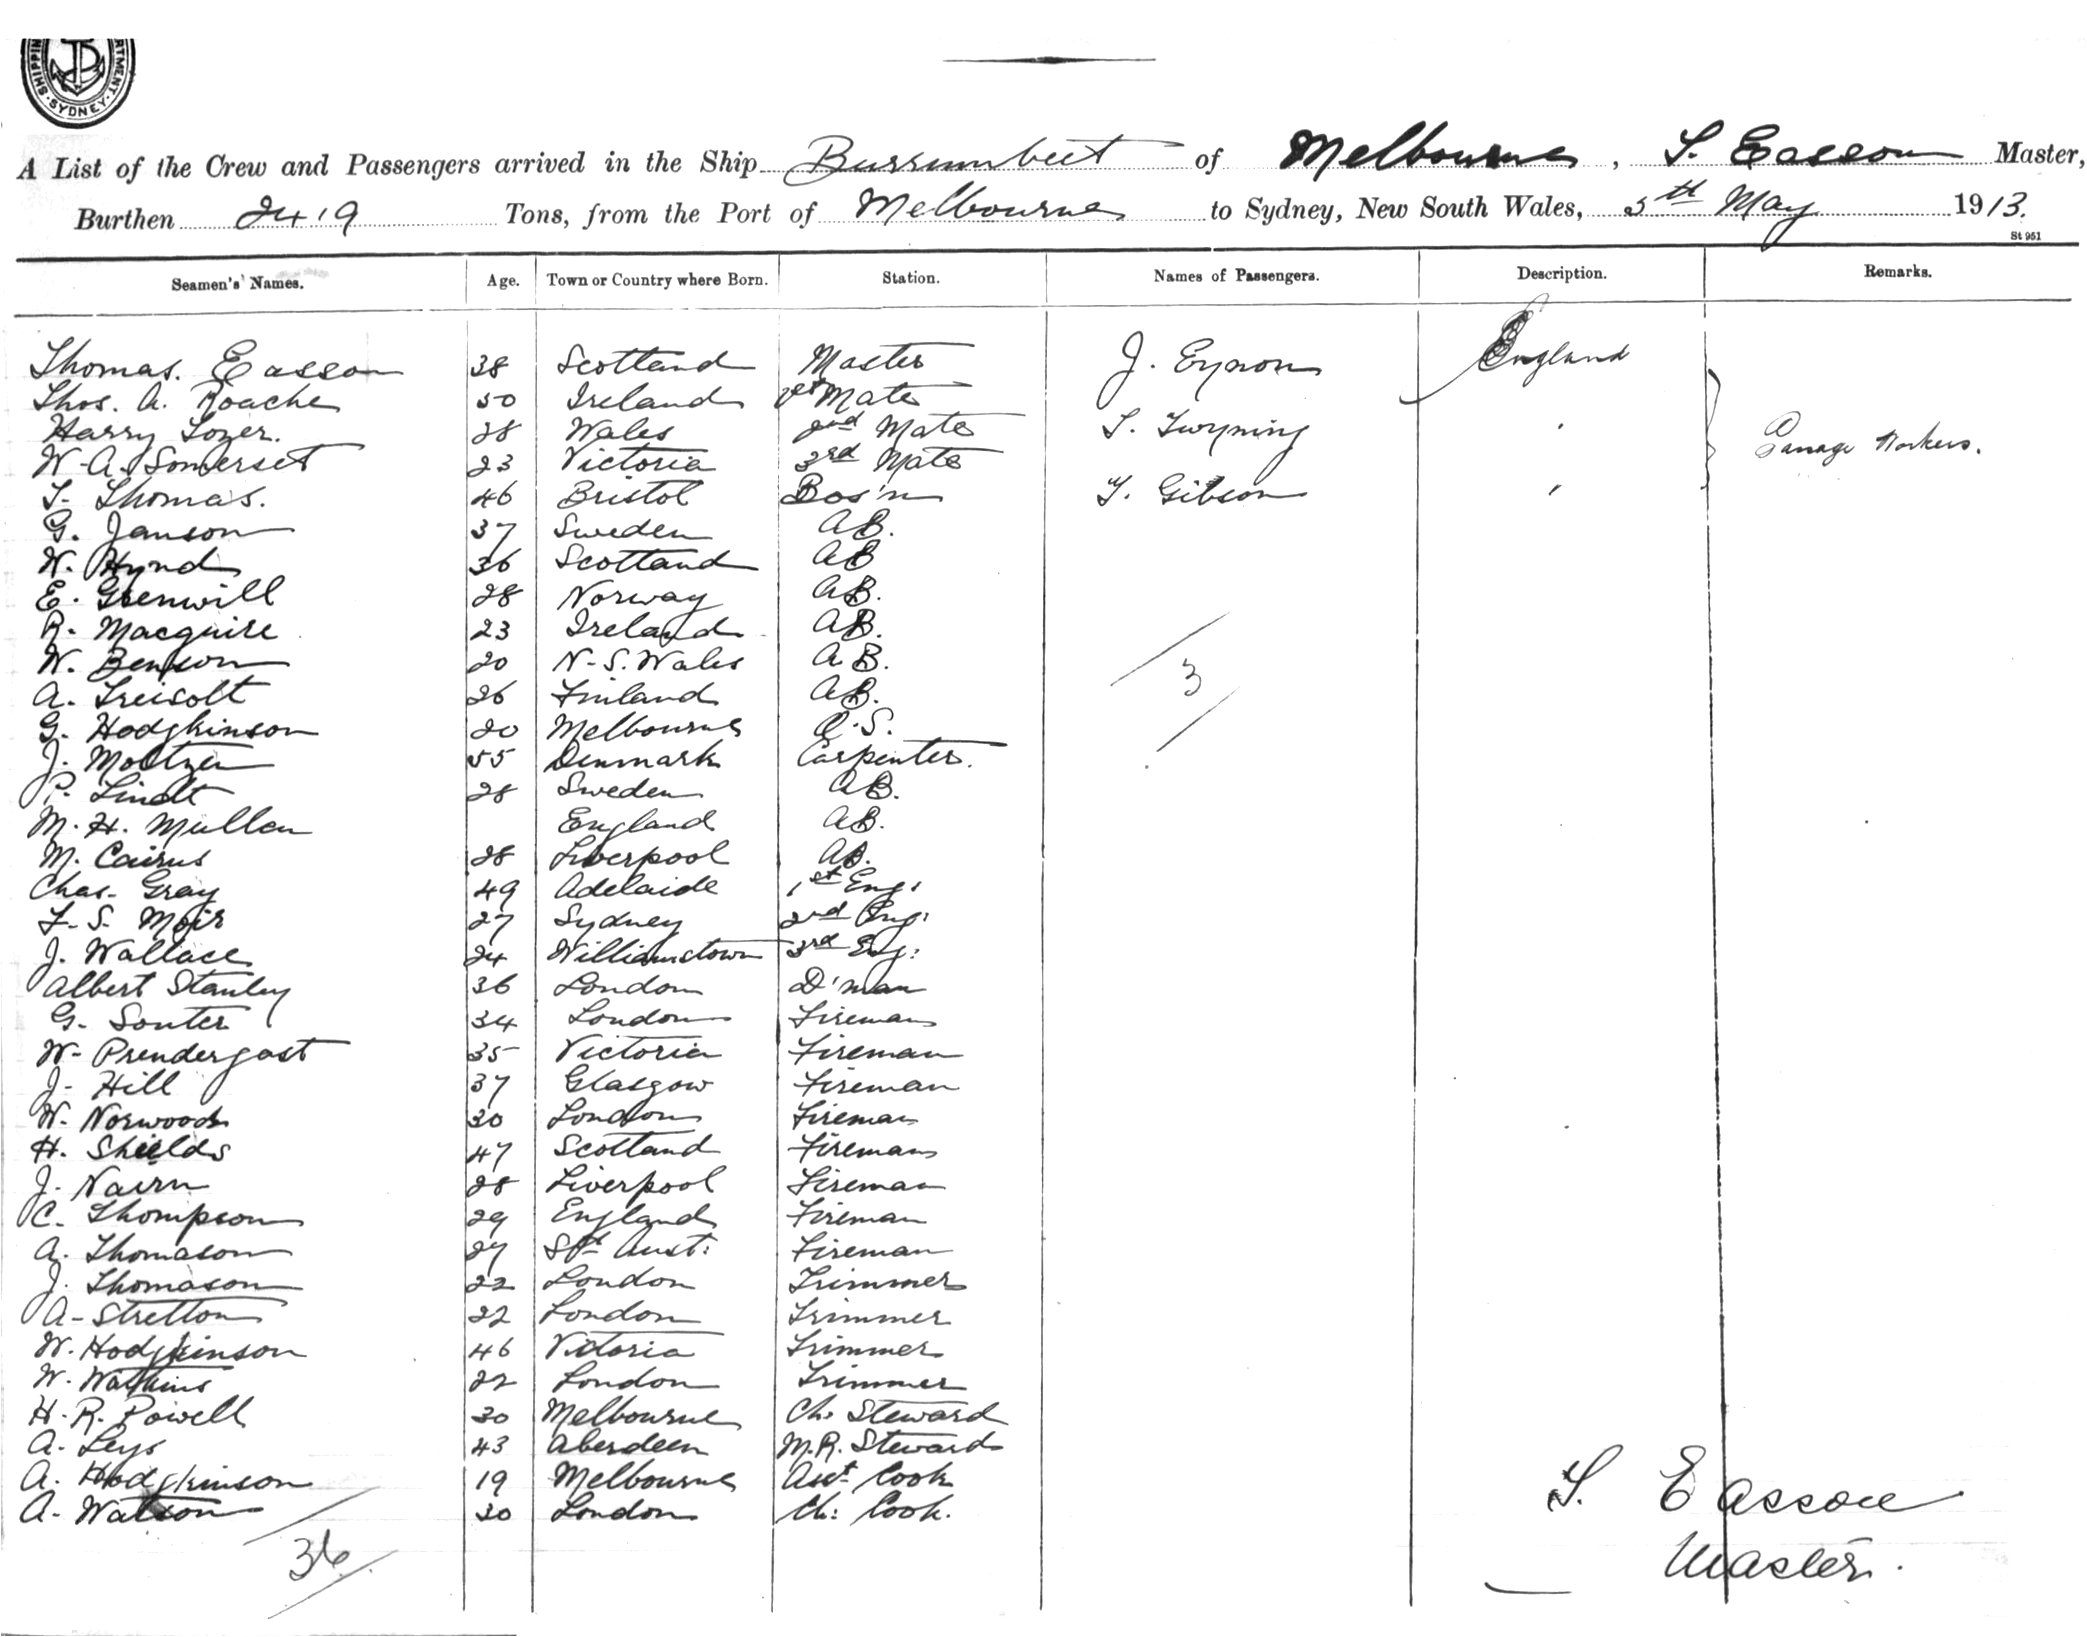 SHIPPIN RTMENT. SYDNEY.
A List of the Crew and Passengers arrived in the Ship Burrumbeet of Melbourne, T. Easson Master,
Burthen 2419 Tons, from the Port of Melbourne to Sydney, New South Wales, 5th May 1913.
St 951
Seamen's Names. Age. Town or Country where Born. Station. Names of Passengers. Description. Remarks.
Thomas. Easson 38 Scotland Master J. Eynon England
Thos. A. Roache 50 Ireland 1st Mate
Harry Lozer. 28 Wales 2nd Mate T. Twyning " Passage Workers.
W. A. Somerset 23 Victoria 3rd Mate
T. Thomas. 46 Bristol Bos'n T. Gibson "
G. Janson 37 Sweden AB.
W. Hynd 36 Scotland AB
E. Grenwill 28 Norway AB.
R. Macguire 23 Ireland AB.
W. Benson 20 N. S. Wales A B.
A. Treisolt 26 Finland AB. 3
G. Hodgkinson 20 Melbourne O. S.
J. Moltzen 55 Denmark Carpenter.
P. Lindt 28 Sweden AB.
M. H. Mullen England AB.
M. Cairns 28 Liverpool AB.
Chas. Gray 49 Adelaide 1st Eng:
F. S. Moir 27 Sydney 2nd Eng:
J. Wallace 24 Williamstown 3rd Eng:
Albert Stanley 36 London D'man
G. Souter 34 London Fireman
W. Prendergast 35 Victoria Fireman
J. Hill 37 Glasgow Fireman
W. Norwood 30 London Fireman
H. Shields 47 Scotland Fireman
J. Nairn 28 Liverpool Fireman
C. Thompson 29 England Fireman
A. Thomason 27 Sth Aust: Fireman
J. Thomason 22 London Trimmer
A. Stretton 22 London Trimmer
W. Hodgkinson 46 Victoria Trimmer
W. Watkins 22 London Trimmer
H. R. Powell 30 Melbourne Ch. Steward
A. Leys 43 Aberdeen M.R. Steward
A. Hodgkinson 19 Melbourne Asst Cook
A. Watson 30 London Ch: Cook.
T. Easson
36
Master.